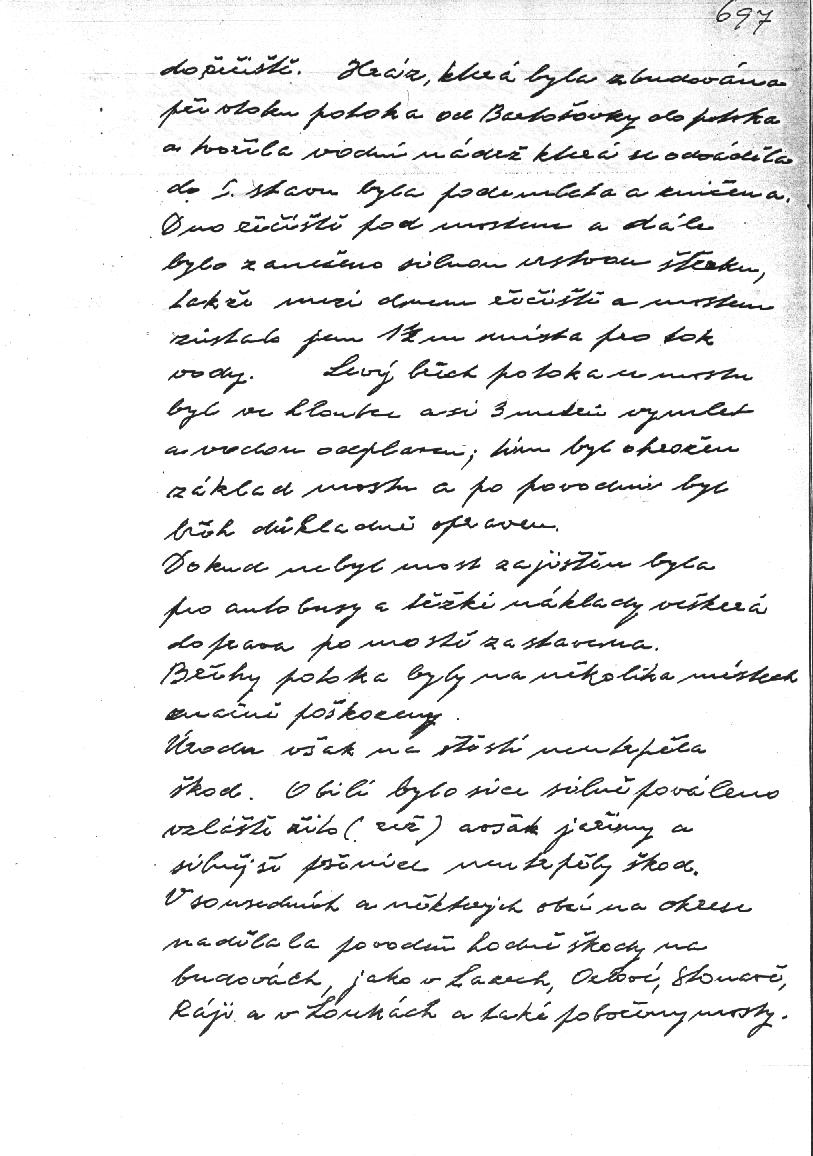 697
do řečiště. Hráz, která byla zbudována
při vtoku potoka od Bartošovky do potoka
a tvořila vodní nádrž která se odváděla
do I. stavu byla podemleta a zničena.
Dno řečiště pod mostem a dále
bylo zaneseno silnou vrstvou štěrku,
takže mezi dnem řečiště a mostem
zůstalo jen m místa pro tok
vody. Levý břeh potoka u mostu
byl ve hloubce asi 3 metrů vymlet
a vodou odplaven; tím byl ohrožen
základ mostu a po povodni byl
břeh důkladně opraven.
Dokud nebyl most zajištěn byla
pro autobusy a těžké náklady veškerá
doprava po mostě zastavena.
Břehy potoka byly na několika místech
značně poškozeny.
Úroda však na štěstí neutrpěla
škod. Obilí bylo sice silně pováleno
vzláště žito (rež) avšak jařiny a
silnější pšenice neutrpěly škod.
V sousedních a některých obcí na okrese
nadělala povodeň hodně škody na
budovách, jako v Lazech, Orlové, Stonavě,
Ráji a v Loukách a také pobořeny mosty.